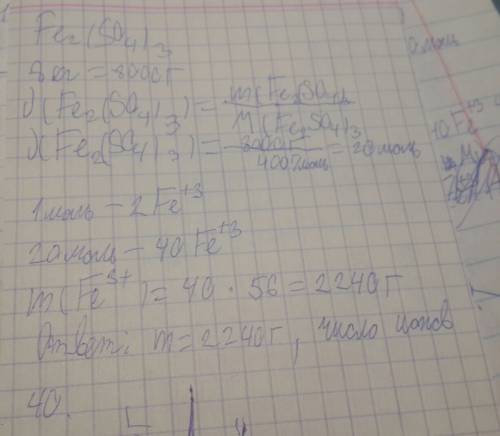 Fe₂(SO₄)₃
8 кг = 8000г
ν(Fe₂(SO₄)₃) = m(Fe₂(SO₄)₃ / M(Fe₂(SO₄)₃
ν(Fe₂(SO₄)₃) = 8000г / 400г/моль = 20моль
1моль – 2Fe⁺³
20моль – 40Fe⁺³
m(Fe³⁺) = 40 · 56 = 2240г
Ответ: m = 2240г, число ионов
40.